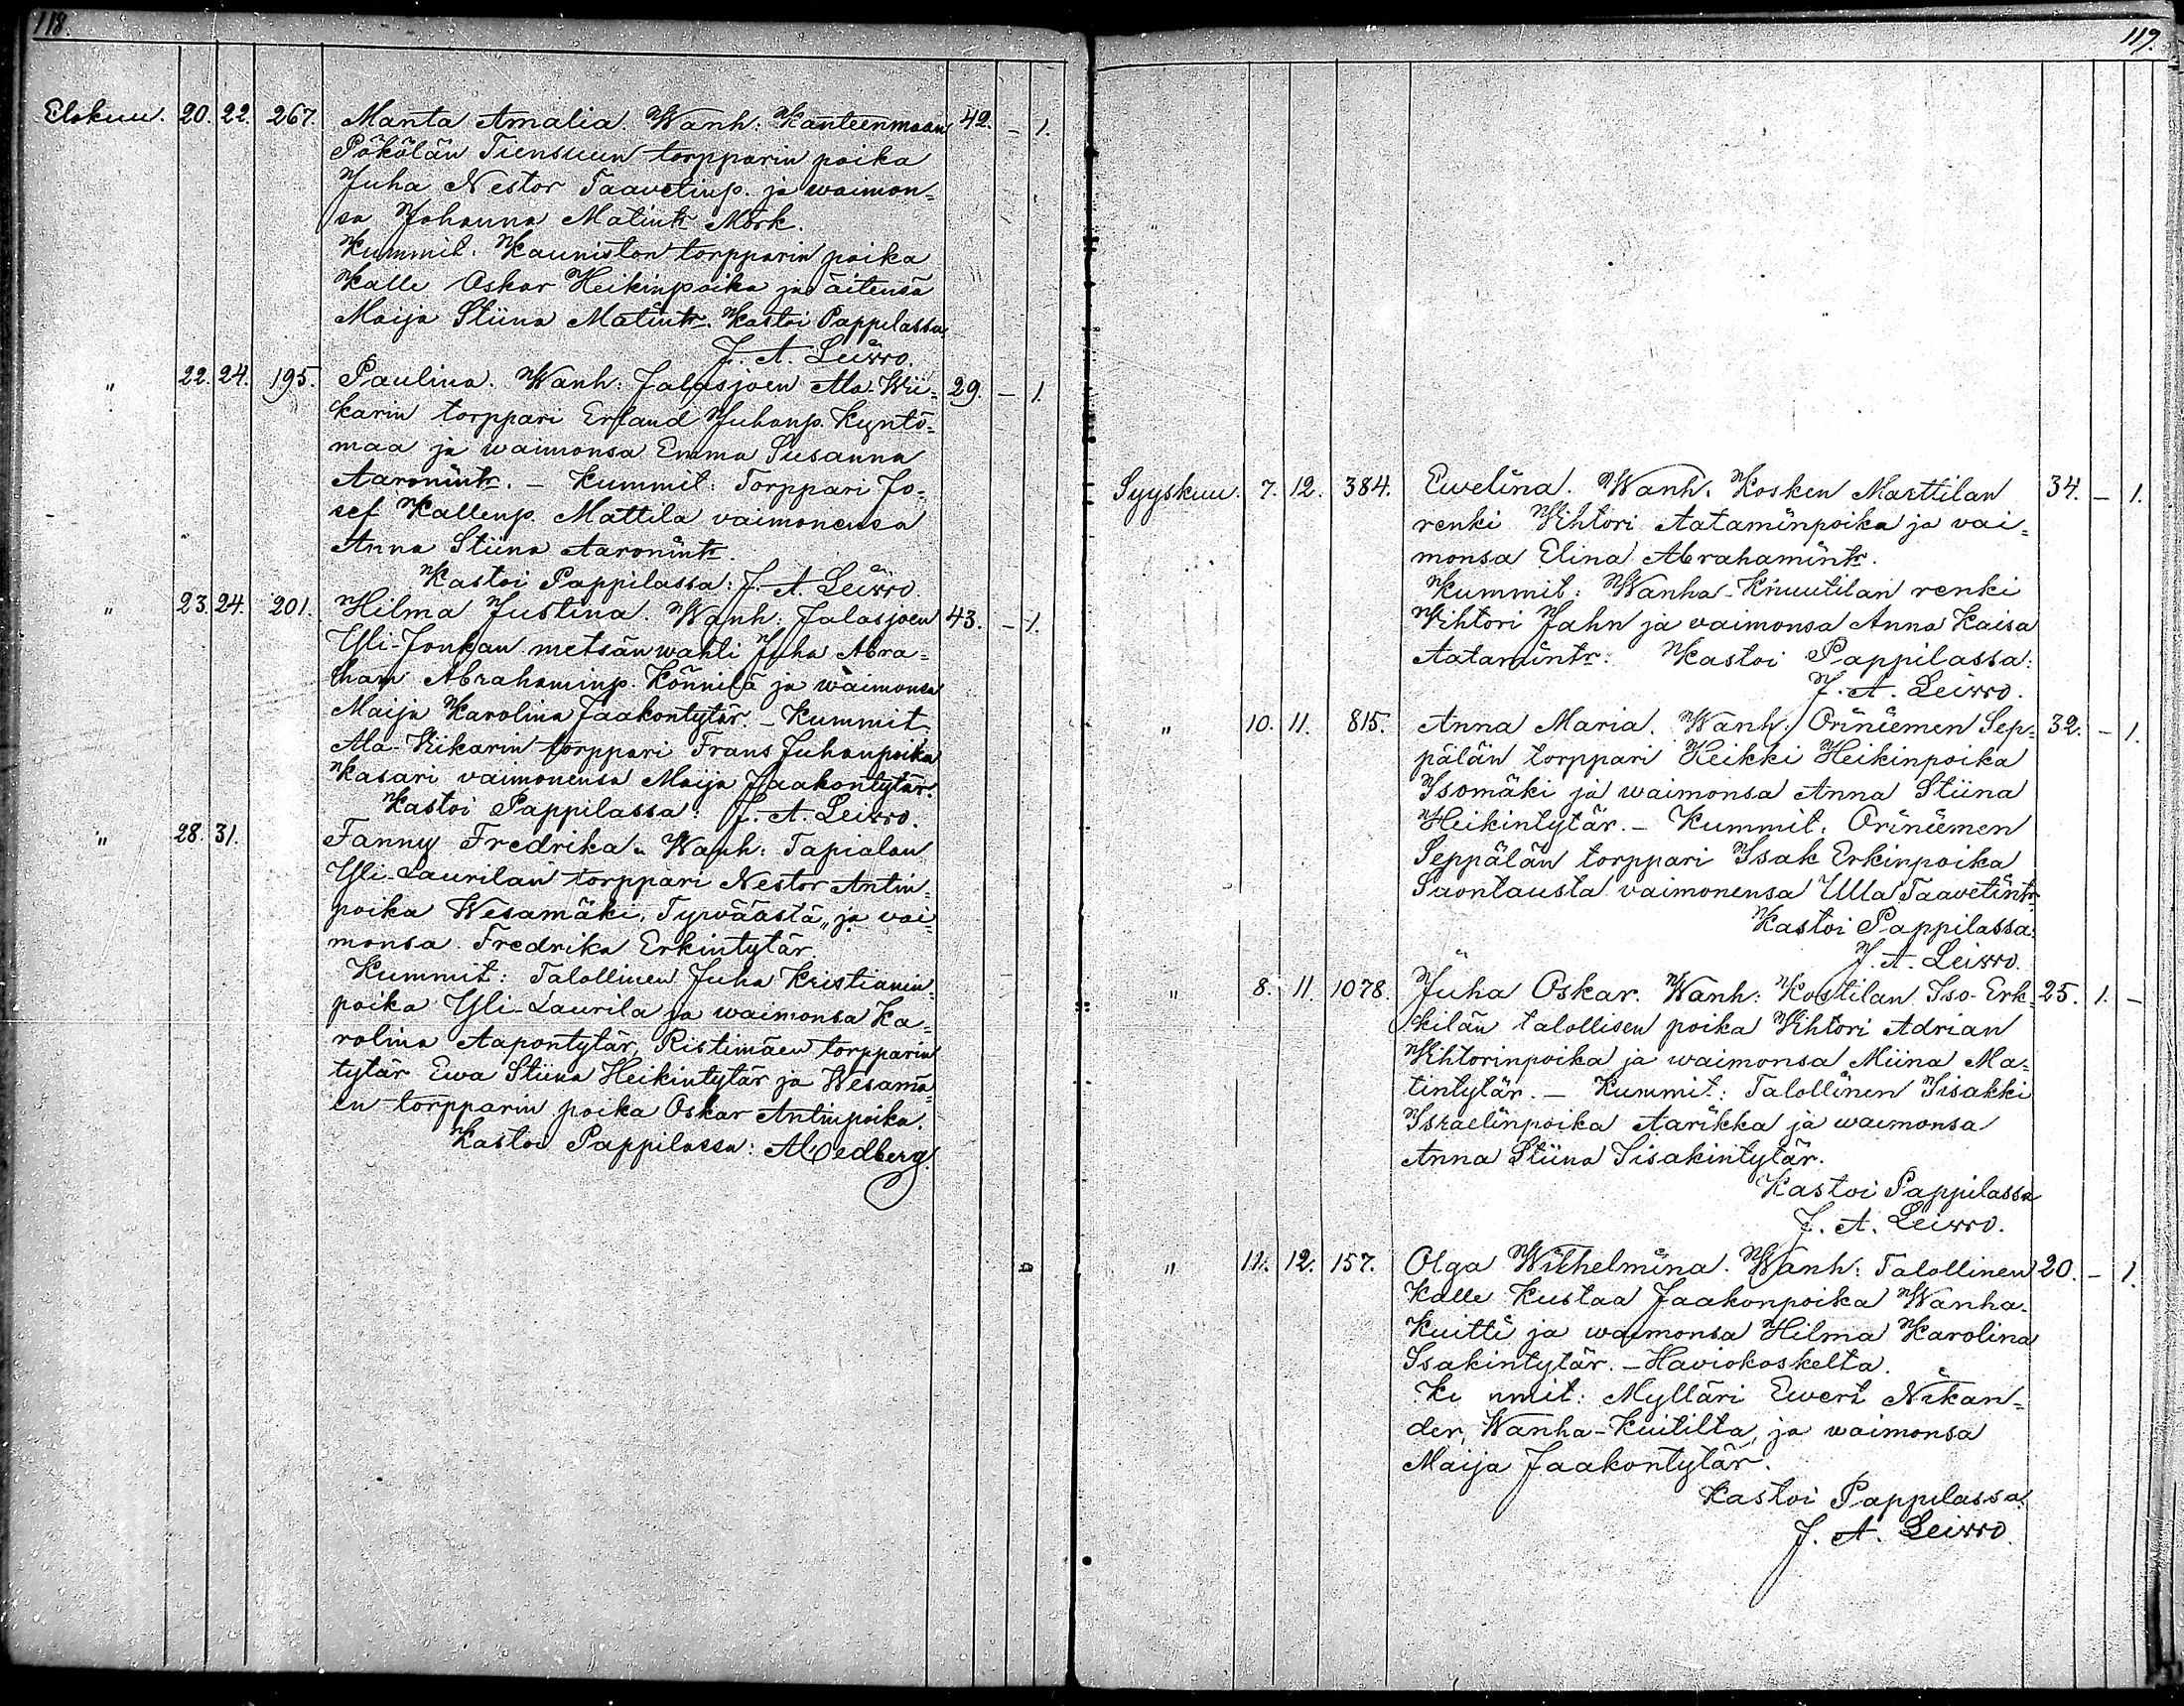 118.
Elokuu. 20. 22. 267. Manta Amalia. Wanh: Kanteenmaan 42. – 1.
Pökölän Tiensuun torpparin poika
Juha Nestor Taavetinp. ja waimon=
sa Johanna Matintr Mörk.
Kummit. Kauniston torpparin poika
Kalle Oskar Heikinpoika ja äitensä
Maija Stiina Matintr. Kastoi Pappilassa,
J. A. Leisso.
" 22. 24. 195. Paulina. Wanh: Jalasjoen Ala-Wii= 29. – 1.
karin torppari Erland Juhanp. Kyntö=
maa ja waimonsa Emma Susanna
Aaronintr. – Kummit: Torppari Jo=
sef Kallenp. Mattila vaimonensa
Anna Stiina Aaronintr.
Kastoi Pappilassa: J. A. Leisso.
" 23. 24. 201. Hilma Justina. Wanh: Jalasjoen 43. – 1.
Yli-Jonkan metsänwahti Juha Abra=
ham Abrahaminp. Könnilä ja waimonsa
Maija Karolina Jaakontytär. – Kummit.
Ala-Viikarin torppari Frans Juhanpoika
Kasari vaimonensa Maija Jaakontytär.
Kastoi Pappilassa: J. A. Leisso.
" 28. 31. Fanny Fredrika. Wanh: Tapialan
Yli-Laurilan torppari Nestor Antin=
poika Wesamäki, Tyrväästä, ja vai=
monsa Fredrika Erkintytär.
Kummit: Talollinen Juha Kristianin=
poika Yli-Laurila ja waimonsa Ka=
rolina Aapontytär, Ristimäen torpparin
tytär Ewa Stiina Heikintytär ja Wesamä=
en torpparin poika Oskar Antinpoika.
Kastoi Pappilassa: A Hedberg.
119.
Syyskuu. 7. 12. 384. Ewelina. Wanh. Kosken Marttilan 34. – 1.
renki Vihtori Aataminpoika ja vai=
monsa Elina Abrahamintr.
Kummit: Wanha-Knuutilan renki
Vihtori Jahn ja vaimonsa Anna Kaisa
Aatamintr. Kastoi Pappilassa:
J. A. Leisso.
" 10. 11. 815. Anna Maria. Wanh: Oriniemen Sep= 32. – 1.
pälän torppari Heikki Heikinpoika
Isomäki ja waimonsa Anna Stiina
Heikintytär. – Kummit: Oriniemen
Seppälän torppari Isak Erkinpoika
Suontausta vaimonensa Ulla Taavetintr.
Kastoi Pappilassa:
J. A. Leisso.
" 8. 11. 1078. Juha Oskar. Wanh: Kostilan Iso-Erk= 25. 1. –
kilän talollisen poika Vihtori Adrian
Vihtorinpoika ja waimonsa Miina Ma=
tintytär. – Kummit: Talollinen Iisakki
Israelinpoika Aarikka ja waimonsa
Anna Stiina Iisakintytär.
Kastoi Pappilassa
J. A. Leisso.
" 11. 12. 157. Olga Wilhelmina. Wanh: Talollinen 20. – 1.
Kalle Kustaa Jaakonpoika Wanha-
Kuitti ja waimonsa Hilma Karolina
Isakintytär. – Haviokoskelta.
Ku mmit: Mylläri Ewert Nikan=
der, Wanha-Kuitilta, ja waimonsa
Maija Jaakontytär.
Kastoi Pappilassa.
J. A. Leisso.